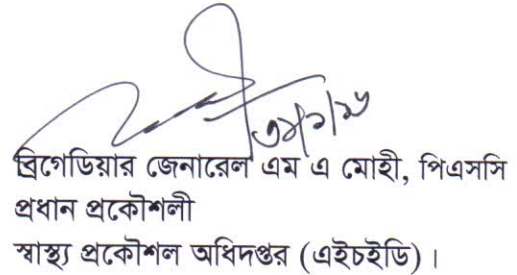 ব্রিগেডিয়ার জেনারেল এম এ মোহী, পিএসসি
প্রধান প্রকৌশলী
স্বাস্থ্য প্রকৌশল অধিদপ্তর (এইচইডি) ।